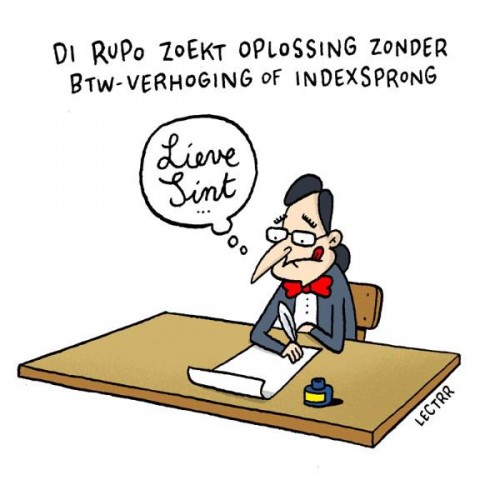 DI RUPO ZOEKT OPLOSSING ZONDER
BTW-VERHOGING OF INDEXSPRONG
Lieve
Sint
...
LECTRR